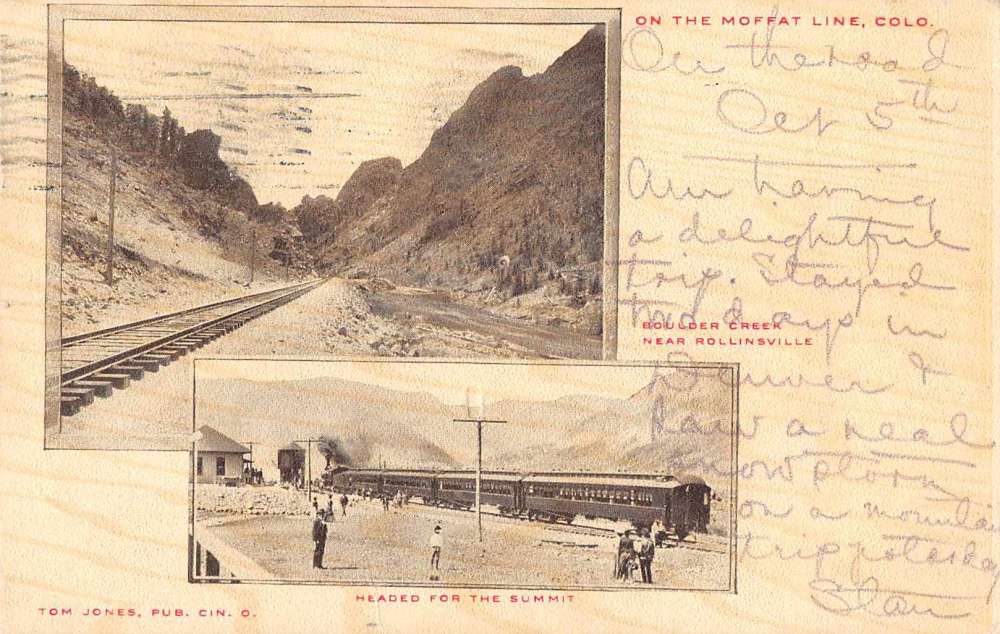 ON THE MOFFAT LINE, COLO.
On the road
Oct 5th
Am having
a delightful
trip. Stayed
two days in
BOULDER CREEK
NEAR ROLLINSVILLE
Denver &
saw a real
snow storm
on a mountain
trip
HEADED FOR THE SUMMIT
TOM JONES, PUB. CIN. O.